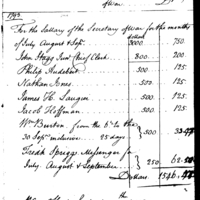 1793
For the Sallary of the Secretary of War for the months
dollars
of July August & Sepr. 3000 750.
John Stagg Junr Chief Clerk 800 200.
Philip Audebert 500 125.
Nathan Jones 500 125.
James H. Laugier 500 125.
Jacob Hoffman 500 125.
Wm Burton from the 6th to the
30 Sepr inclusive 25 days 500
Fredk Spriggs Messenger for
July August & September 250 62.50
Dollars 1546.